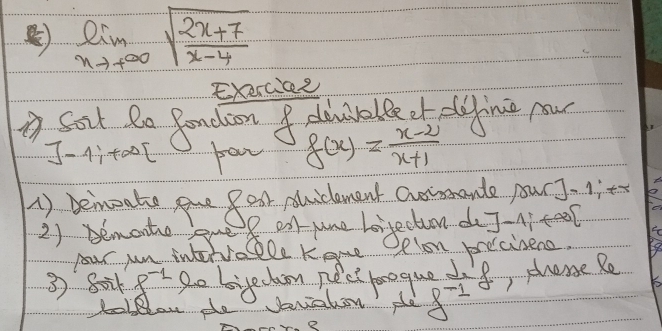 e) lim √(2x+7 / x-4)
x→+∞
Exercice 2
1) Soit la fonction f dérivable et définie sur
]-1; +∞[ par f(x) = x-2 / x+1
1) Démontre que f est strictement croissante sur ]-1; +∞
2) Démontre que f est une bijection de ]-1; +∞[
sur un intervalle K que l'on précisera.
3) Soit f⁻¹ la bijection réciproque de f, dresse le
tableau de variation de f⁻¹